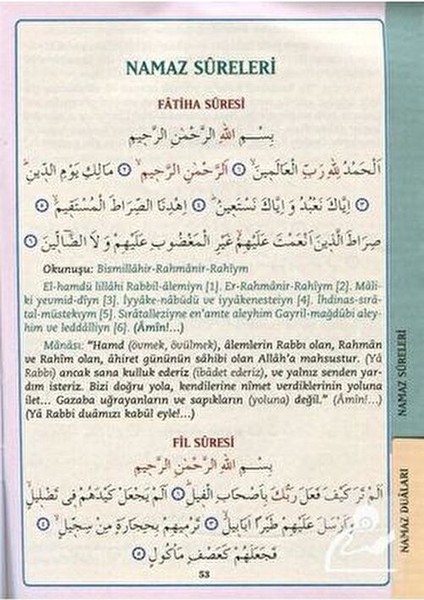 NAMAZ SÛRELERİ
FÂTİHA SÛRESİ
بِسْمِ اللهِ الرَّحْمٰنِ الرَّحِيمِ
اَلْحَمْدُ لِلّٰهِ رَبِّ الْعَالَمِينَۙ ﴿١﴾ اَلرَّحْمٰنِ الرَّحِيمِۙ ﴿٢﴾ مَالِكِ يَوْمِ الدِّينِۜ
﴿٣﴾ اِيَّاكَ نَعْبُدُ وَ اِيَّاكَ نَسْتَعِينُۜ ﴿٤﴾ اِهْدِنَا الصِّرَاطَ الْمُسْتَقِيمَۙ ﴿٥﴾
صِرَاطَ الَّذِينَ اَنْعَمْتَ عَلَيْهِمْۙ غَيْرِ الْمَغْضُوبِ عَلَيْهِمْ وَ لَا الضَّالِّينَ ﴿٦﴾
Okunuşu: Bismillâhir-Rahmânir-Rahîym
El-hamdü lillâhi Rabbil-âlemiyn [1]. Er-Rahmânir-Rahîym [2]. Mâli-
ki yevmid-dîyn [3]. İyyâke-nâbüdü ve iyyâkenesteiyn [4]. İhdinas-sırâ-
tal-müstekıym [5]. Sırâtalleziyne en'amte aleyhim Gayril-mağdûbi aley-
him ve leddâlliyn [6]. (Âmîn!...)
Mânâsı: "Hamd (övmek, övülmek), âlemlerin Rabbı olan, Rahmân
ve Rahîm olan, âhiret gününün sâhibi olan Allâh'a mahsustur. (Yâ
Rabbi) ancak sana kulluk ederiz (ibâdet ederiz), ve yalnız senden yar-
dım isteriz. Bizi doğru yola, kendilerine nîmet verdiklerinin yoluna
ilet... Gazaba uğrayanların ve sapıkların (yoluna) değil." (Âmîn!...)
(Yâ Rabbi duamızı kabûl eyle!...)
FİL SÛRESİ
بِسْمِ اللهِ الرَّحْمٰنِ الرَّحِيمِ
اَلَمْ تَرَ كَيْفَ فَعَلَ رَبُّكَ بِاَصْحَابِ الْفِيلِۜ ﴿١﴾ اَلَمْ يَجْعَلْ كَيْدَهُمْ فِى تَضْلِيلٍۙ
﴿٢﴾ وَاَرْسَلَ عَلَيْهِمْ طَيْرًا اَبَابِيلَۙ ﴿٣﴾ تَرْمِيهِمْ بِحِجَارَةٍ مِنْ سِجِّيلٍۙ ﴿٤﴾
فَجَعَلَهُمْ كَعَصْفٍ مَأْكُولٍ ﴿٥﴾
53
NAMAZ SÛRELERİ
NAMAZ DUÂLARI